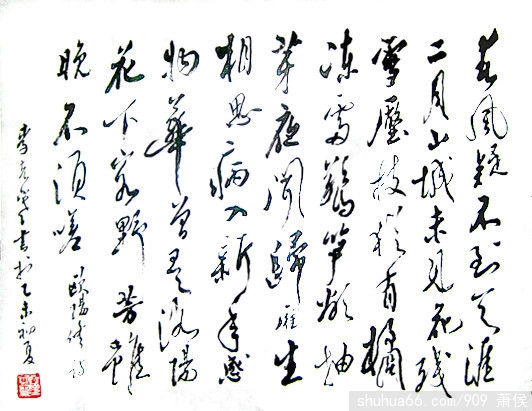 春風疑不到天涯
二月山城未見花残
雪壓枝猶有橘
凍雷驚笋欲抽
芽夜聞歸雁生
相思病入新年感
物華曾是洛陽
花下客野芳雖
晚不須嗟 歐陽修詩
書於乙未初夏
shuhua66.com/909 萧侯